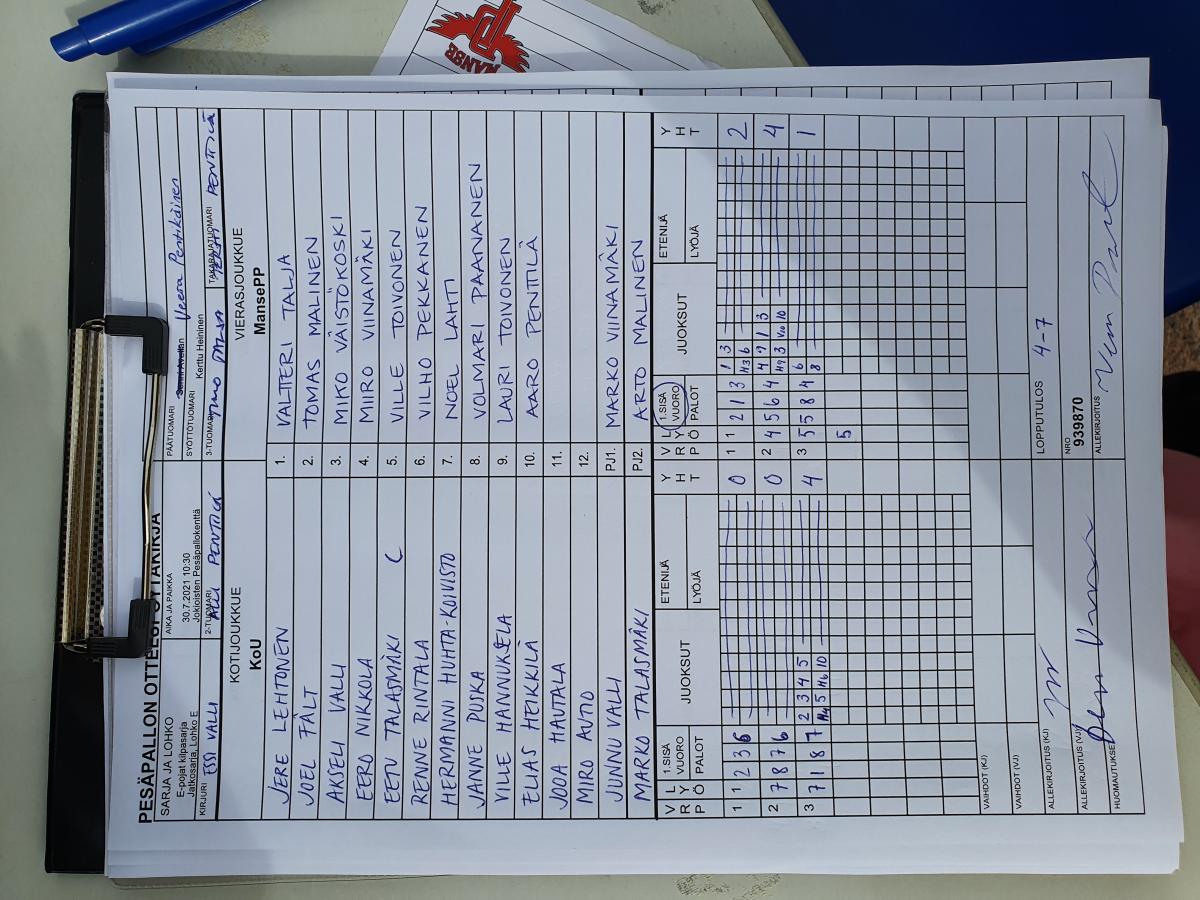 MANSE
PESÄPALLON OTTELUPÖYTÄKIRJA
SARJA JA LOHKO
E-pojat kilpasarja
Jatkosarja, Lohko E
AIKA JA PAIKKA
30.7.2021 10:30
Jokioisten Pesäpallokenttä
PÄÄTUOMARI Veera Pentikäinen
SYÖTTÖTUOMARI Kerttu Heininen
KIRJURI ESSI VALLI
2-TUOMARI PENTTILÄ
3-TUOMARI
TAKARAJATUOMARI PENTTILÄ
KOTIJOUKKUE
KoU
VIERASJOUKKUE
MansePP
JERE LEHTONEN 1. VALTTERI TALJA
JOEL FÄLT 2. TOMAS MALINEN
AKSELI VALLI 3. MIKO VÄISTÖKOSKI
EERO NIKKOLA 4. MIRO VIINAMÄKI
EETU TALASMÄKI C 5. VILLE TOIVONEN
RENNE RINTALA 6. VILHO PEKKANEN
HERMANNI HUHTA-KOIVISTO 7. NOEL LAHTI
JANNE PUSKA 8. VOLMARI PAANANEN
VILLE HANNUKSELA 9. LAURI TOIVONEN
ELIAS HEIKKILÄ 10. AARO PENTTILÄ
JOOA HAUTALA 11.
MIRO AUTIO 12.
JUNNU VALLI PJ1. MARKO VIINAMÄKI
MARKO TALASMÄKI PJ2. ARTO MALINEN
V R P L Y Ö 1.SISÄ VUORO PALOT JUOKSUT ETENIJÄ LYÖJÄ Y H T V R P L Y Ö 1.SISÄ VUORO PALOT JUOKSUT ETENIJÄ LYÖJÄ Y H T
1 1 2 3 6 0 1 1 2 1 3 1 3 2
H3 6
2 7 8 7 6 0 2 4 5 6 4 4 7 1 3 4
H9 3 10
3 7 1 8 7 2 3 4 5 4 3 5 5 8 4 6 1
H4 5 H6 10 8
5
VAIHDOT (KJ)
VAIHDOT (VJ)
ALLEKIRJOITUS (KJ)
LOPPUTULOS 4-7
ALLEKIRJOITUS (VJ)
NRO
939870
HUOMAUTUKSET
ALLEKIRJOITUS